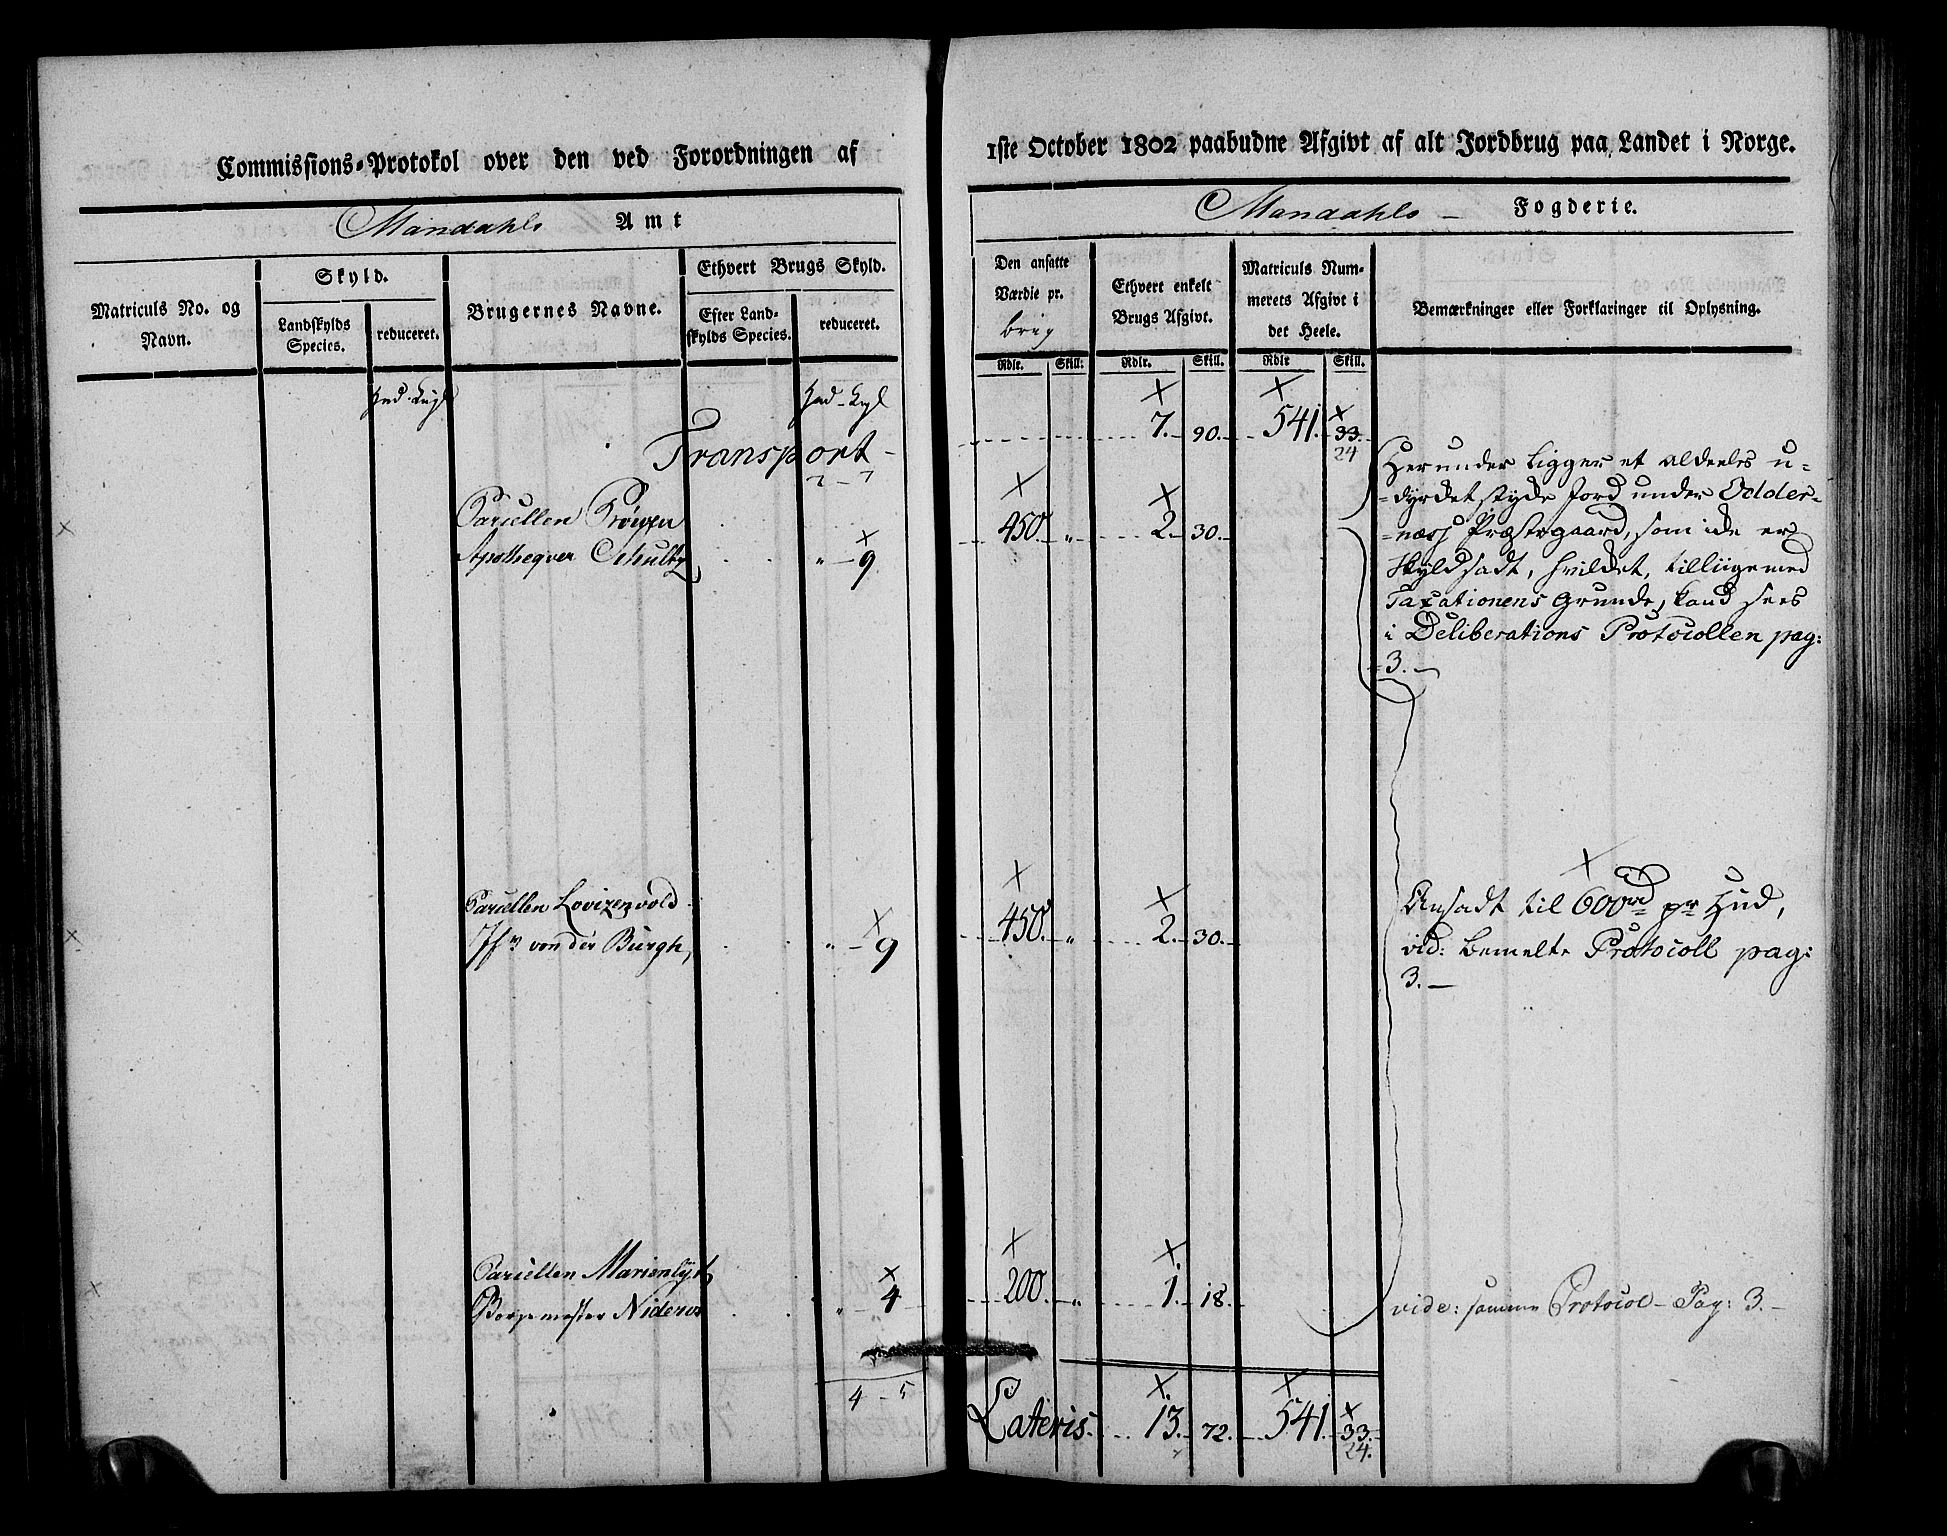 Commissions-Protokol over den ved Forordningen af
1ste October 1802 paabudne Afgivt af alt Jordbrug paa Landet i Norge.
Mandahls Amt
Mandahls – Fogderie.
Matriculs No. og Navn.
Skyld.
Landskylds Species.
reduceret.
Brugernes Navne.
Ethvert Brugs Skyld.
Efter Landskylds Species.
reduceret.
Den ansatte Værdie pr.
Ethvert enkelt Brugs Afgivt.
Matriculs Nummerets Afgivt i det Heele.
Bemærkninger eller Forklaringer til Oplysning.
Rdlr. Skill: Rdlr. Skill. Rdlr Skill.
Transport 7. 90. 541. 33.
24
Parcellen
Apothequer Schultz " 9 450. " 2. 30.
Herunder ligger et aldeeles u-
-dyrdet stykke Jord under Odder-
-næss Præstegaard, som icke er
Skyldsadt, hvilcket, tilligemed
Taxationens Grunde, kand sees
i Deliberations Protocollen pag:
3. –
Parcellen Lovizenvold
von der Burgh, " 9 450. " 2. 30.
Ansadt til 600rd pr Hud,
vid: bemelte Protocoll pag:
3. –
Parcellen Marienlyst
Borgemester Niderou " 4 200. " 1. 18.
vide: samme Protocol – Pag: 3. –
4 - 5
Lateris 13. 72. 541. 33.
24.